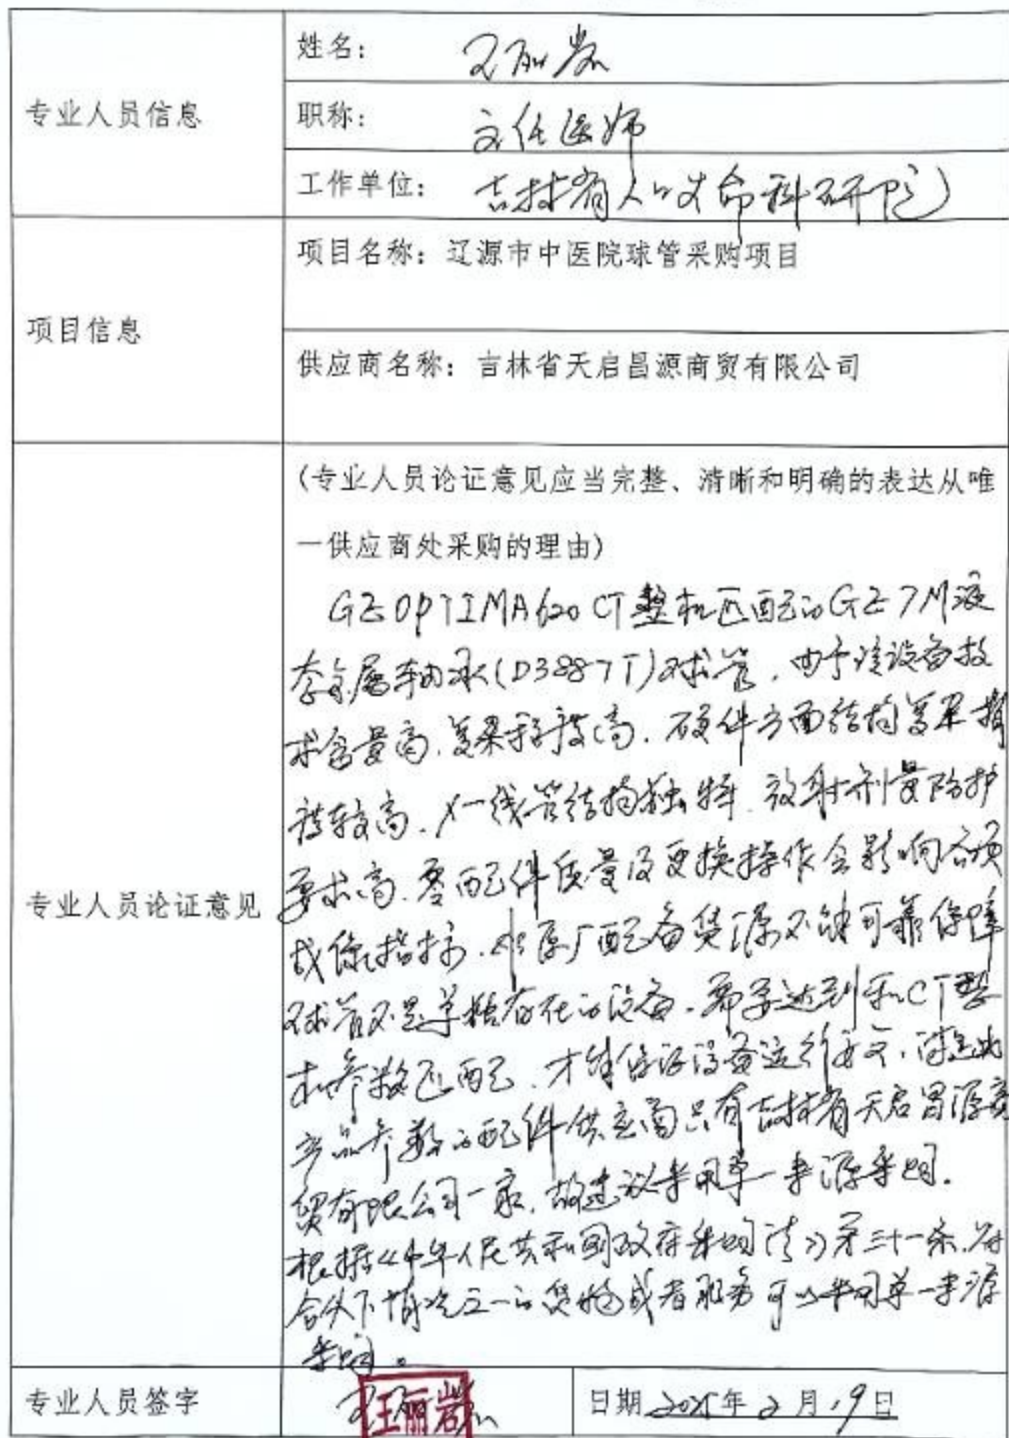 专业人员信息
姓名：
王丽岩
职称：
主任医师
工作单位：
吉林省人口生命科研院
项目信息
项目名称：辽源市中医院球管采购项目
供应商名称：吉林省天启昌源商贸有限公司
专业人员论证意见
（专业人员论证意见应当完整、清晰和明确的表达从唯
一供应商处采购的理由）
GE OPTIMA 620 CT整机匹配的GE 7M液
态金属轴承(D3887T)球管，由于该设备技
术含量高，复杂程度高，硬件方面结构复杂精
度较高，X一线管结构独特，放射剂量防护
要求高，零配件质量及更换操作会影响各项
成像指标，非原厂配备货源不能可靠保障
球管不是单独存在的设备，需要达到和CT整
机参数匹配，才能保证设备运行安全，满足此
产品参数的配件供应商只有吉林省天启昌源商
贸有限公司一家，故建议采用单一来源采购。
根据《中华人民共和国政府采购法》第三十一条，符
合以下情况之一的货物或者服务可以采用单一来源
采购。
专业人员签字
王丽岩
王丽岩
日期 2025年2月19日